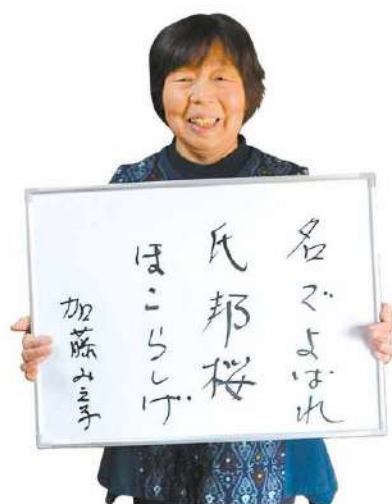 名でよばれ
氏邦桜
ほこらしげ
加藤みえ子